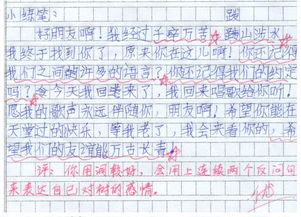 小练笔：
好朋友啊！我经过千辛万苦，跋山涉水，
我终于找到你了，原来你在这儿啊！你还记得
我们之间的许多的语言？你还记得我们的约定
吗？今天我回来了，我回来唱歌给你听。
愿我的歌声永远伴随你，朋友啊！希望你能在
天堂过的快乐，等我老了，我会来看你的，希
望我们的友谊能万古长青。
评：你用词较好，会用上连续两个反问句
来表达自己对树的感情。